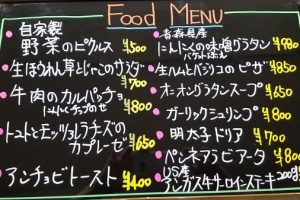 Food MENU
自家製
野菜のピクルス ¥500
生ほうれん草とじゃこのサラダ ¥700
牛肉のカルパッチョ
にんにくチップのせ ¥800
トマトとモッツァレラチーズの
カプレーゼ ¥650
アンチョビトースト ¥400
青森県産
にんにくの味噌グラタン ¥980
バケット
生ハムとバジルのピザ ¥850
オニオングラタンスープ ¥650
ガーリックシュリンプ ¥800
明太子ドリア ¥
ペンネアラビアータ ¥80
US産
アンガス牛サーロインステーキ 200g